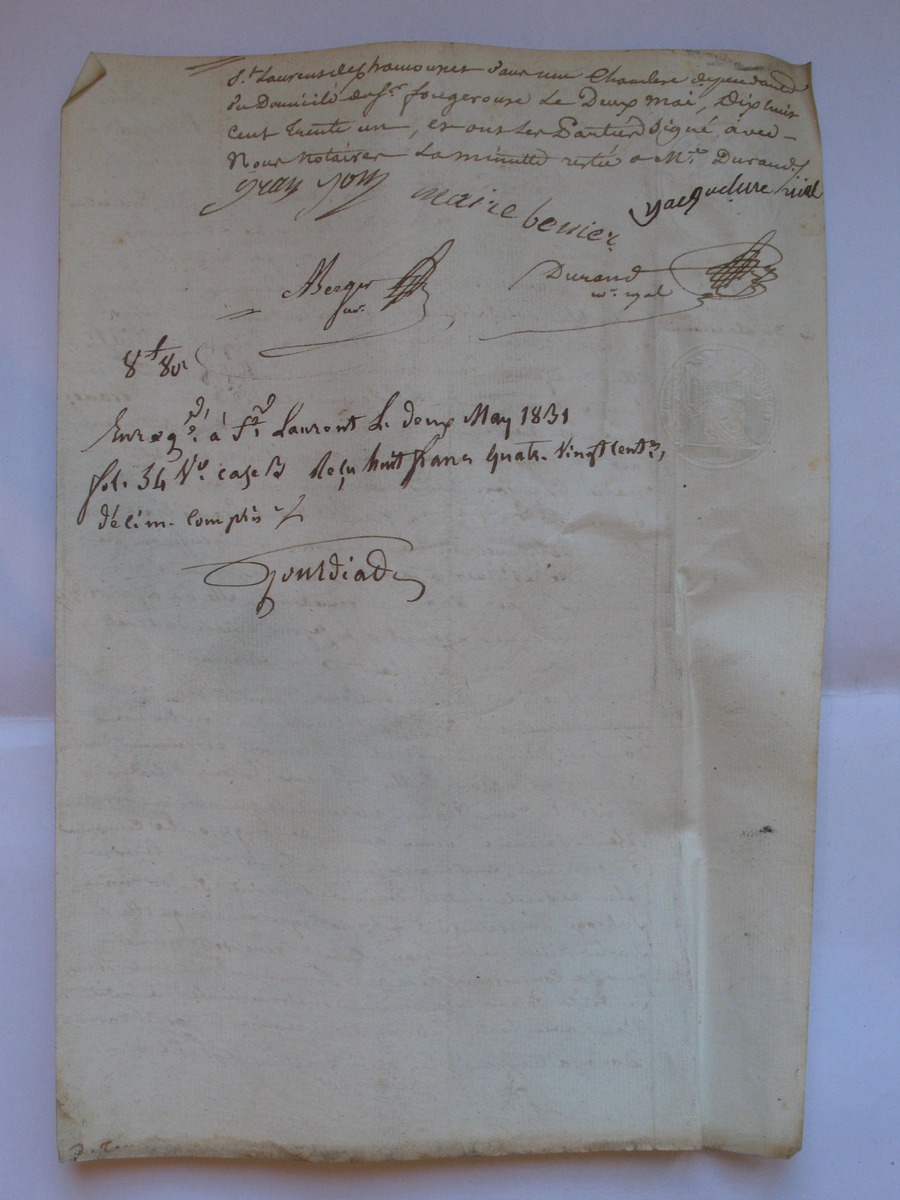 St. Laurent dans une Chambre dependant
du Domicile du Sr. fougerouse Le Deux mai, Dix huit
cent trente un, et ont les Parties signé avec
Nous Notaires La minutte restée a Me. Durand
jean
maire bercier
Berger
Durand
8f 80c
Enregé. à St. Laurent Le deux May 1831
fol. 34 Vo. case Reçu huit francs quatre-Vingt centes,
décime compris